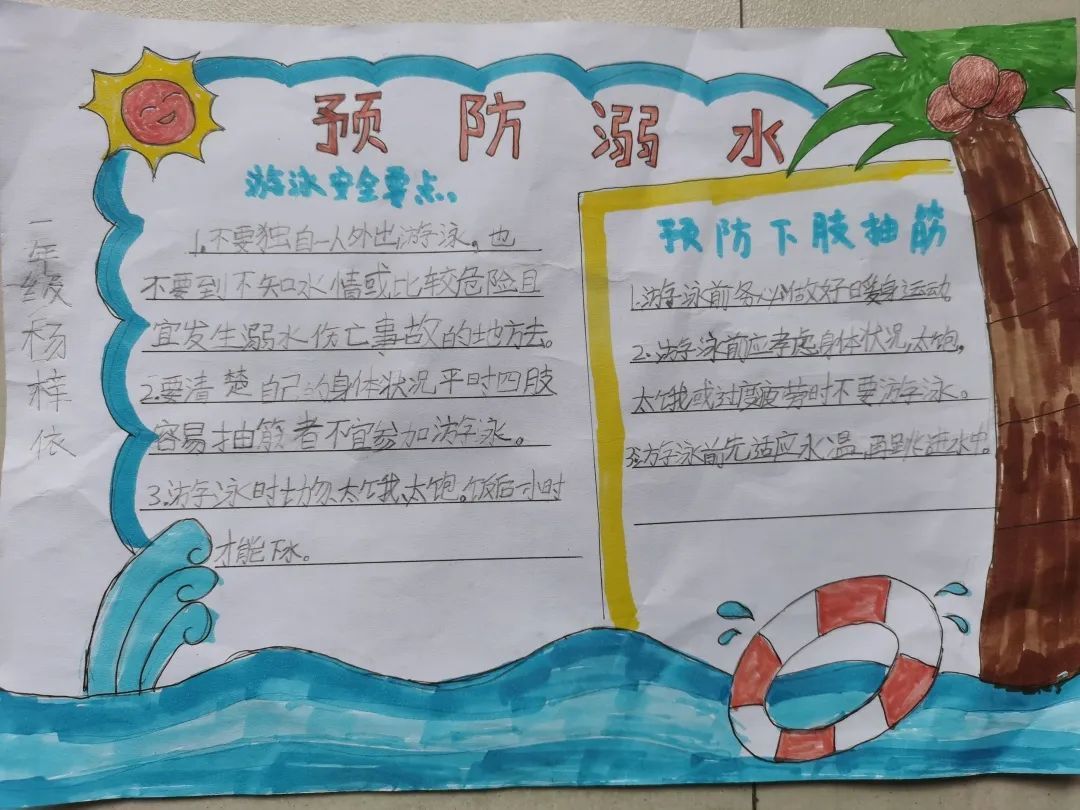 预防溺水
游泳安全要点。
1.不要独自一人外出游泳。也
不要到不知水情或比较危险且
宜发生溺水伤亡事故的地方去。
2.要清楚自己的身体状况平时四肢
容易抽筋者不宜参加游泳。
3.游泳时切勿太饿、太饱。饭后一小时
才能下水。
预防下肢抽筋
1.游泳前务必做好暖身运动。
2.游泳前应考虑身体状况,太饱,
太饿或过度疲劳时不要游泳。
3.游泳前先适应水温,再跳进水中。
一年级杨梓依